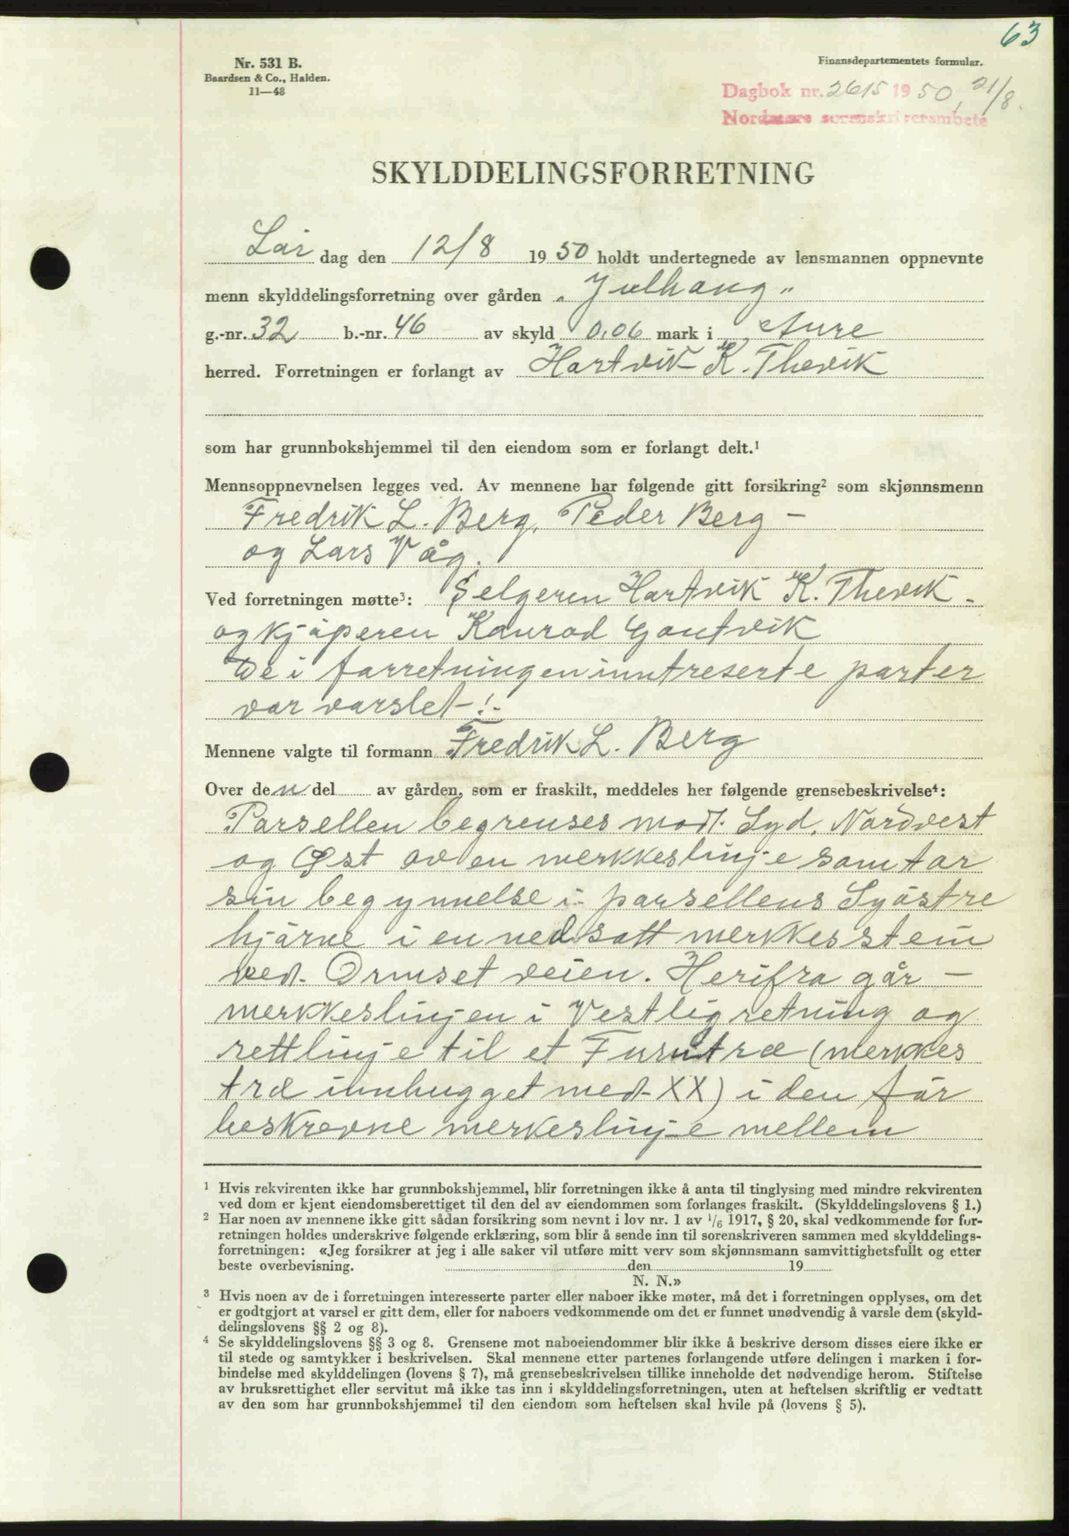 63
Nr. 531 B.
Baardsen & Co., Halden.
11—48
Finansdepartementets formular.
Dagbok nr. 2615 1950, 21/8.
Nordmøre sorenskriverembete
SKYLDDELINGSFORRETNING
Lør dag den 12/8 1950 holdt undertegnede av lensmannen oppnevnte
menn skylddelingsforretning over gården „Julhaug“
g.-nr. 32 b.-nr. 46 av skyld 0.06 mark i Aure
herred. Forretningen er forlangt av Hartvik K. Thevik
som har grunnbokshjemmel til den eiendom som er forlangt delt.¹
Mennsoppnevnelsen legges ved. Av mennene har følgende gitt forsikring² som skjønnsmenn
Fredrik L. Berg, Peder Berg –
og Lars Våg.
Ved forretningen møtte³: Selgeren Hartvik K. Thevik –
og kjøperen Konrad Gautvik
De i forretningen inntreserte parter
var varslet !-
Mennene valgte til formann Fredrik L. Berg
Over den del av gården, som er fraskilt, meddeles her følgende grensebeskrivelse⁴:
Parsellen begrenses mot. Syd, Nordvest
og Øst av en merkkeslinje som tar
sin begynnelse i parsellens Syøstre
hjørne i en nedsatt merkkesstein
ved. Ormset veien. Herifra går –
merkkeslinjen i Vestlig retning og
rettlinje til et Furutræ (merkkes
træ innhugget med XX) i den før
beskrevne merkeslinje mellem
¹ Hvis rekvirenten ikke har grunnbokshjemmel, blir forretningen ikke å anta til tinglysing med mindre rekvirenten
ved dom er kjent eiendomsberettiget til den del av eiendommen som forlanges fraskilt. (Skylddelingslovens § 1.)
² Har noen av mennene ikke gitt sådan forsikring som nevnt i lov nr. 1 av 1/6 1917, § 20, skal vedkommende før for-
retningen holdes underskrive følgende erklæring, som blir å sende inn til sorenskriveren sammen med skylddelings-
forretningen: «Jeg forsikrer at jeg i alle saker vil utføre mitt verv som skjønnsmann samvittighetsfullt og etter
beste overbevisning. den 19
N. N.»
³ Hvis noen av de i forretningen interesserte parter eller naboer ikke møter, må det i forretningen opplyses, om det
er godtgjort at varsel er gitt dem, eller for naboers vedkommende om det er funnet unødvendig å varsle dem (skyld-
delingslovens §§ 2 og 8).
⁴ Se skylddelingslovens §§ 3 og 8. Grensene mot naboeiendommer blir ikke å beskrive dersom disses eiere ikke er
til stede og samtykker i beskrivelsen. Skal mennene etter partenes forlangende utføre delingen i marken i for-
bindelse med skylddelingen (lovens § 7), må grensebeskrivelsen tillike inneholde det nødvendige herom. Stiftelse
av bruksrettighet eller servitut må ikke tas inn i skylddelingsforretningen, uten at heftelsen skriftlig er vedtatt
av den som har grunnbokshjemmel til den eiendom som heftelsen skal hvile på (lovens § 5).